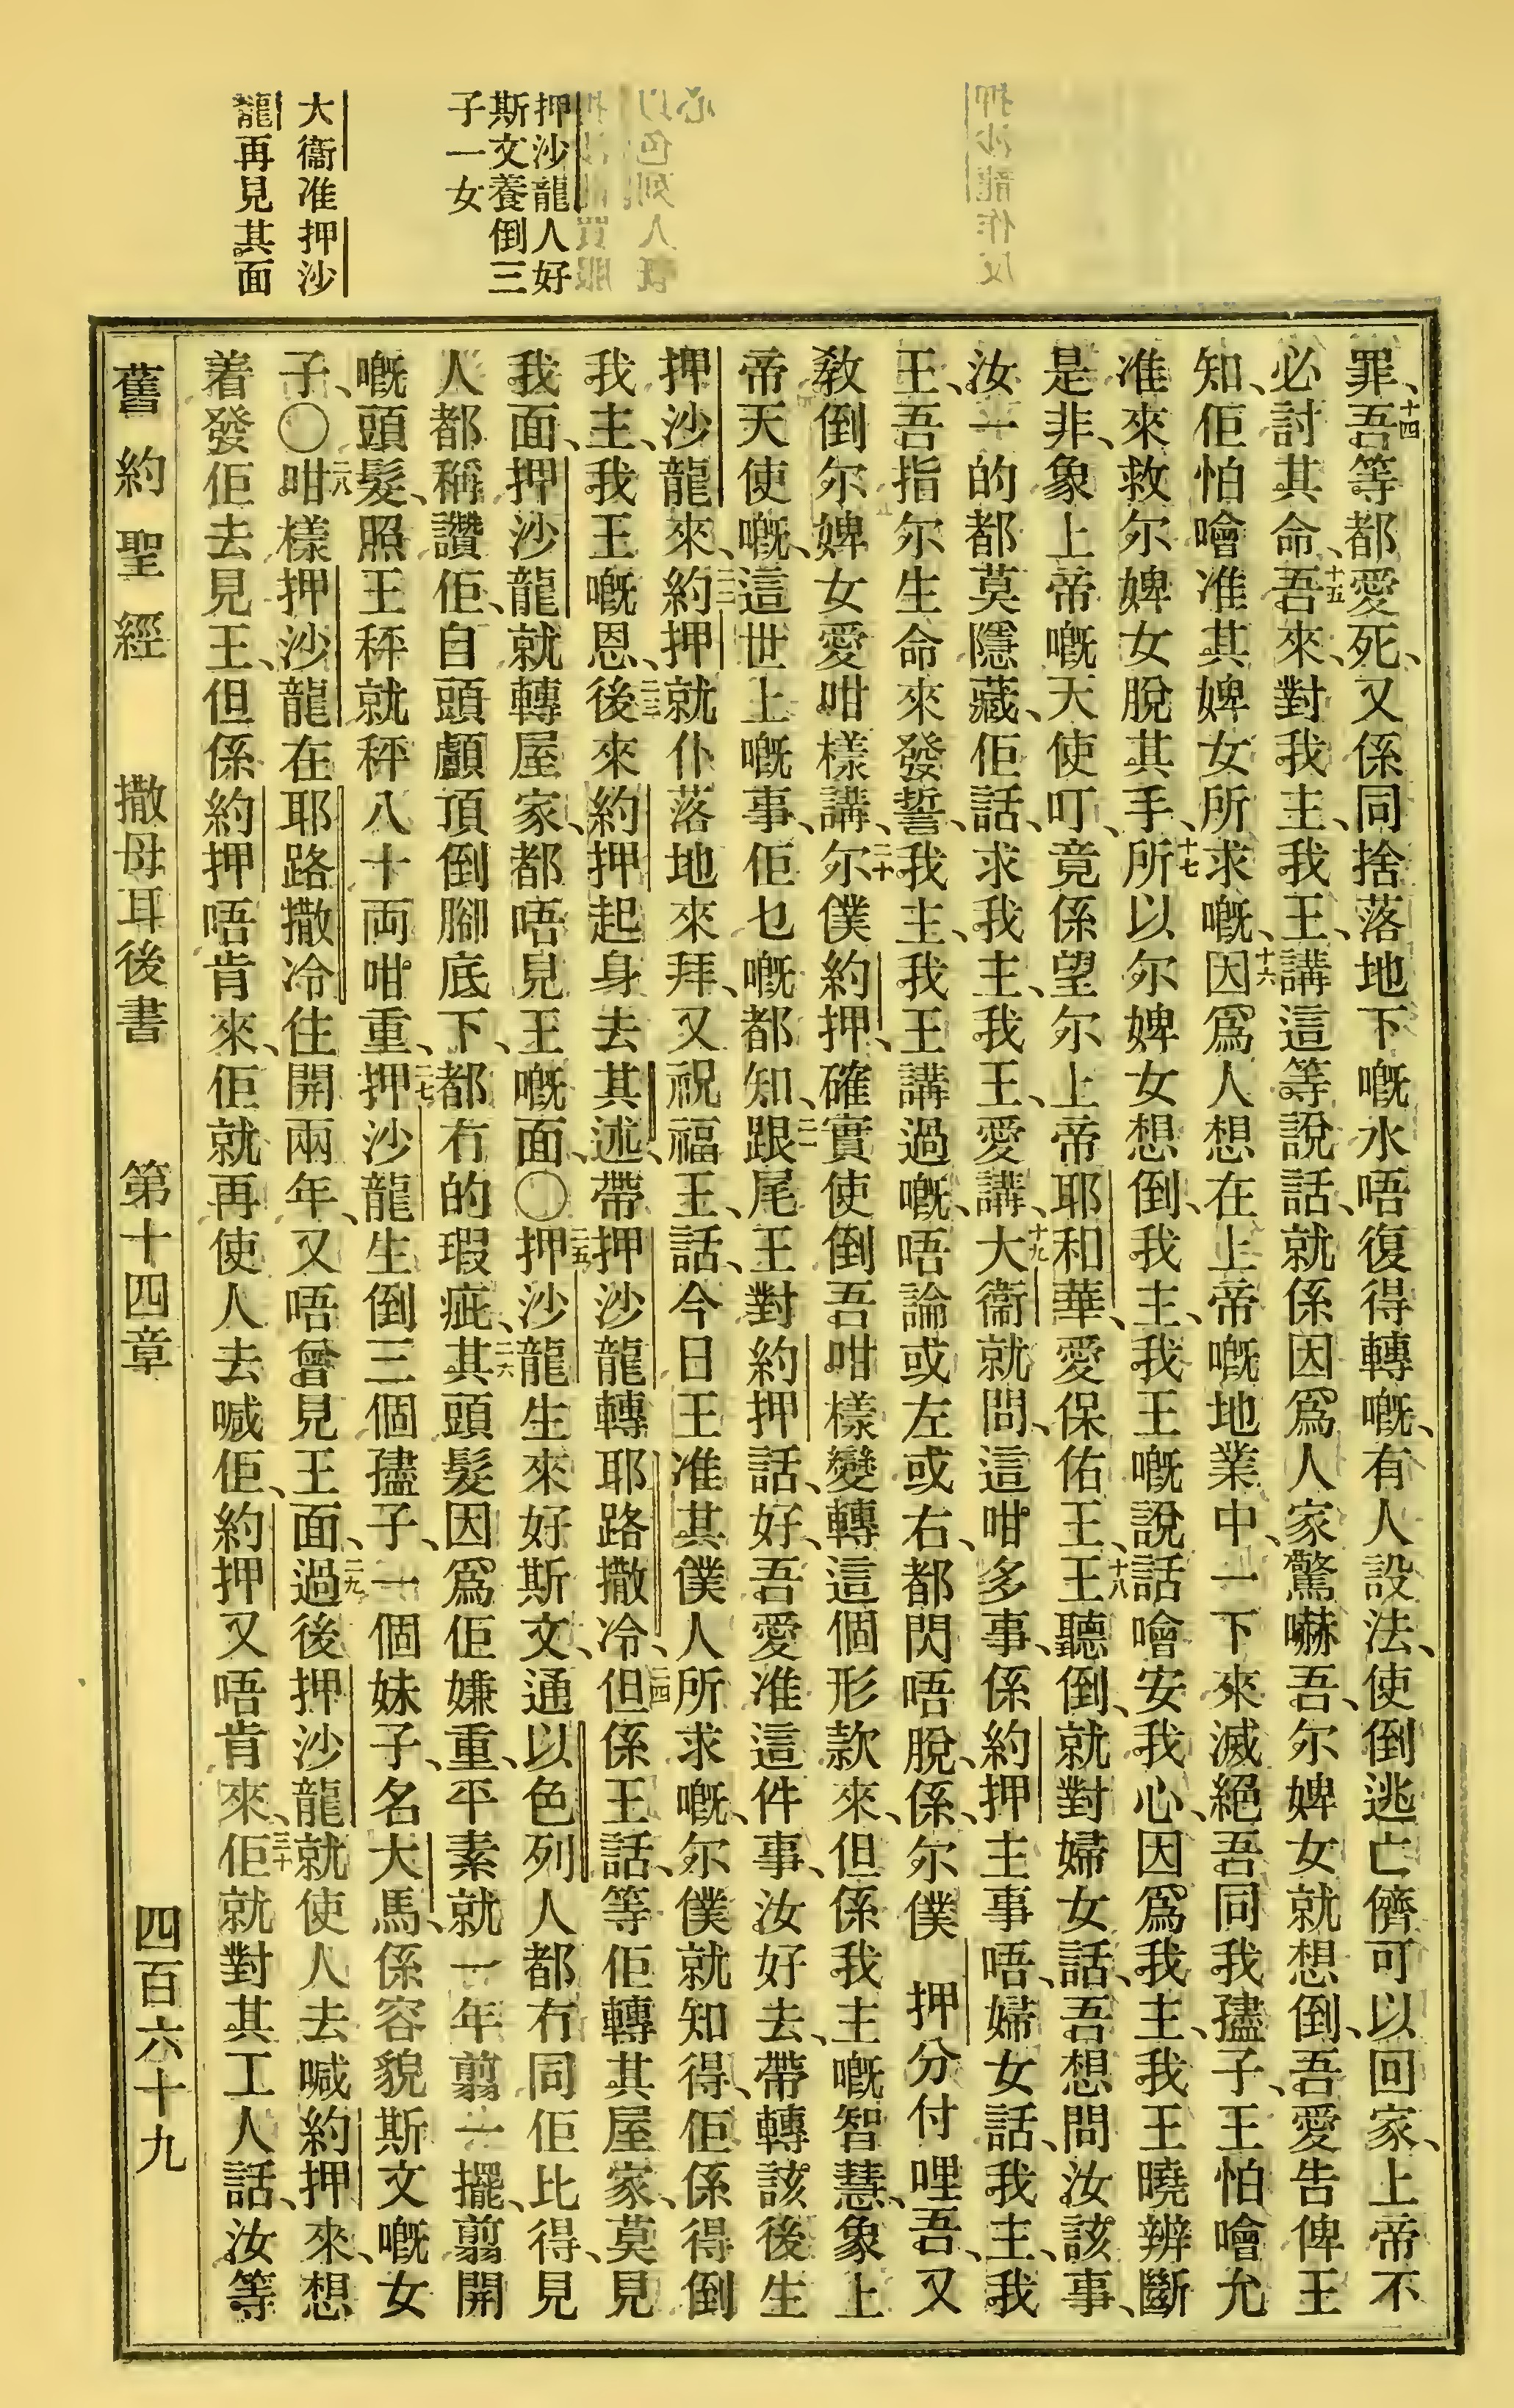 押沙龍人好
斯文養倒三
子一女
大衞准押沙
龍再見其面
罪、十四吾等都愛死、又係同捨落地下嘅水唔復得轉嘅、有人設法、使倒逃亡儕可以回家、上帝不
必討其命、十五吾來、對我主、我王、講這等說話、就係因爲人家驚嚇吾、尔婢女就想倒、吾愛告俾王
知、佢怕噲准其婢女所求嘅、十六因爲人想在上帝嘅地業中、一下來滅絕吾同我孻子、王怕噲允
准來救尔婢女脫其手、十七所以尔婢女想倒、我主、我王嘅說話噲安我心、因爲我主、我王曉辨斷
是非、象上帝嘅天使叮、竟係望尔上帝耶和華、愛保佑王、十八王聽倒、就對婦女話、吾想問汝該事、
汝一的都莫隱藏、佢話、求我主、我王、愛講、十九大衞就問、這咁多事、係約押主事唔、婦女話、我主、我
王、吾指尔生命來發誓、我主、我王講過嘅、唔論或左或右、都閃唔脫、係、尔僕 押分付哩吾、又
教倒尔婢女愛咁樣講、二十尔僕約押、確實使倒吾咁樣變轉這個形款來、但係我主嘅智慧、象上
帝天使嘅、這世上嘅事、佢乜嘅都知、二一跟尾、王對約押話、好、吾愛准這件事、汝好去、帶轉該後生
押沙龍來、二二約押就仆落地來拜、又祝福王、話、今日王准其僕人所求嘅、尔僕就知得、佢係得倒
我主、我王嘅恩、二三後來約押起身去其述、帶押沙龍轉耶路撒冷、二四但係王話、等佢轉其屋家、莫見
我面、押沙龍就轉屋家、都唔見王嘅面、〇二五押沙龍生來好斯文、通以色列人都冇同佢比得、見
人都稱讚佢、自頭顱頂倒腳底下、都冇的瑕疵、二六其頭髮因爲佢嫌重、平素就一年翦一擺、翦開
嘅頭髮、照王秤就秤八十両咁重、二七押沙龍生倒三個孻子、一個妹子、名大馬、係容貌斯文嘅女
子、〇二八咁樣押沙龍在耶路撒冷住開兩年、又唔曾見王面、二九過後押沙龍就使人去喊約押來、想
着發佢去見王、但係約押唔肯來、佢就再使人去喊佢、約押又唔肯來、三十佢就對其工人話、汝等
舊約聖經 撒母耳後書 第十四章 四百六十九